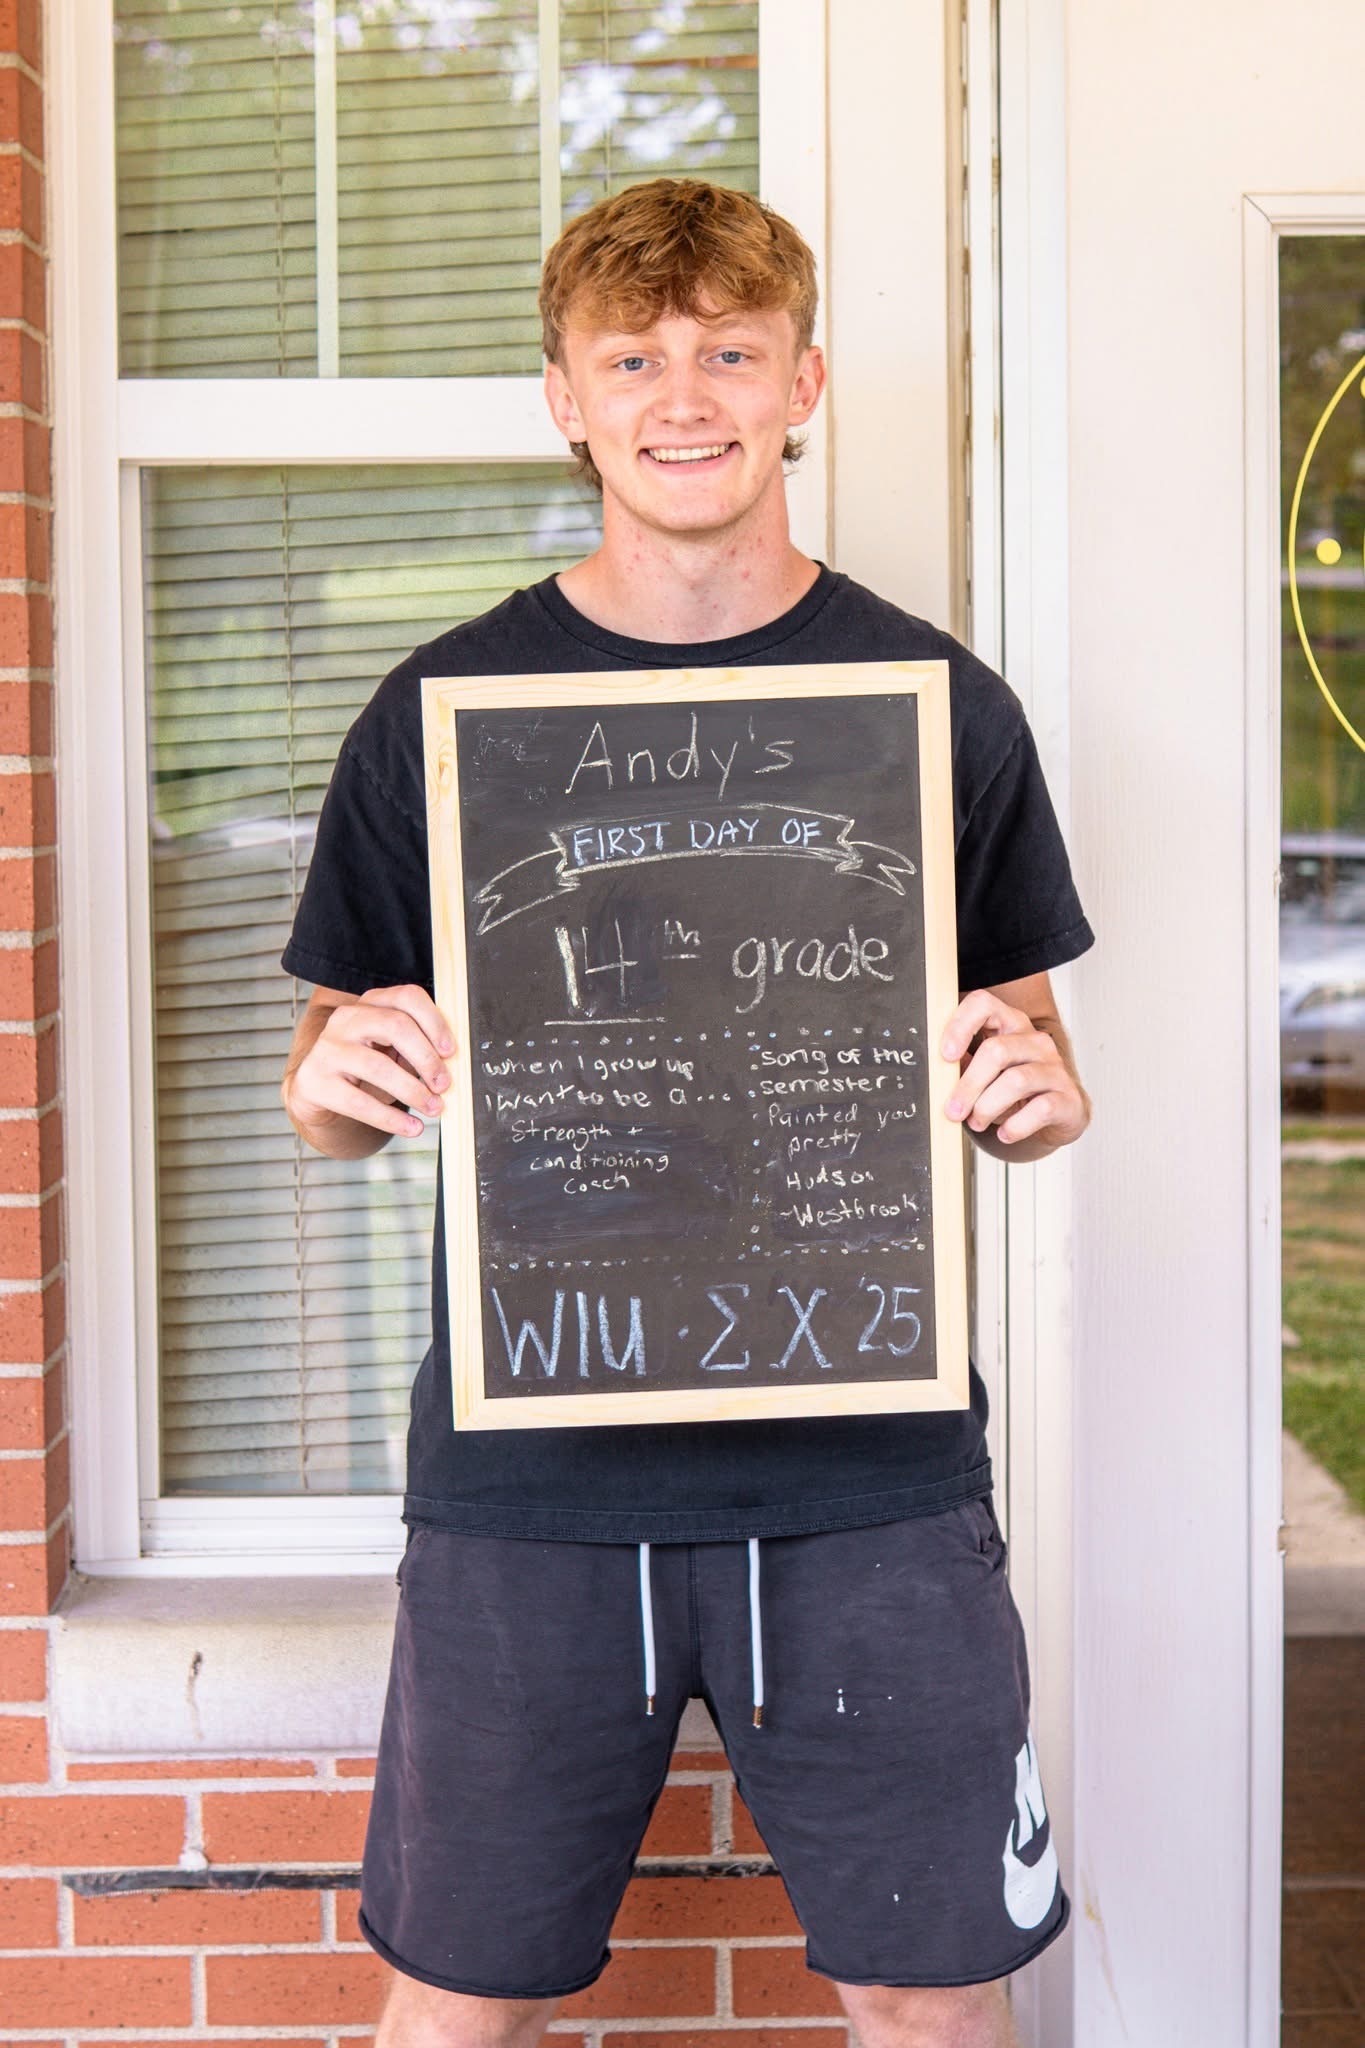 Andy's
FIRST DAY OF
14th grade
When I grow up
I want to be a...
Strength +
conditioining
Coach
Song of the
semester:
Painted you
pretty
Hudson
~Westbrook
WIU · Σ X '25
N